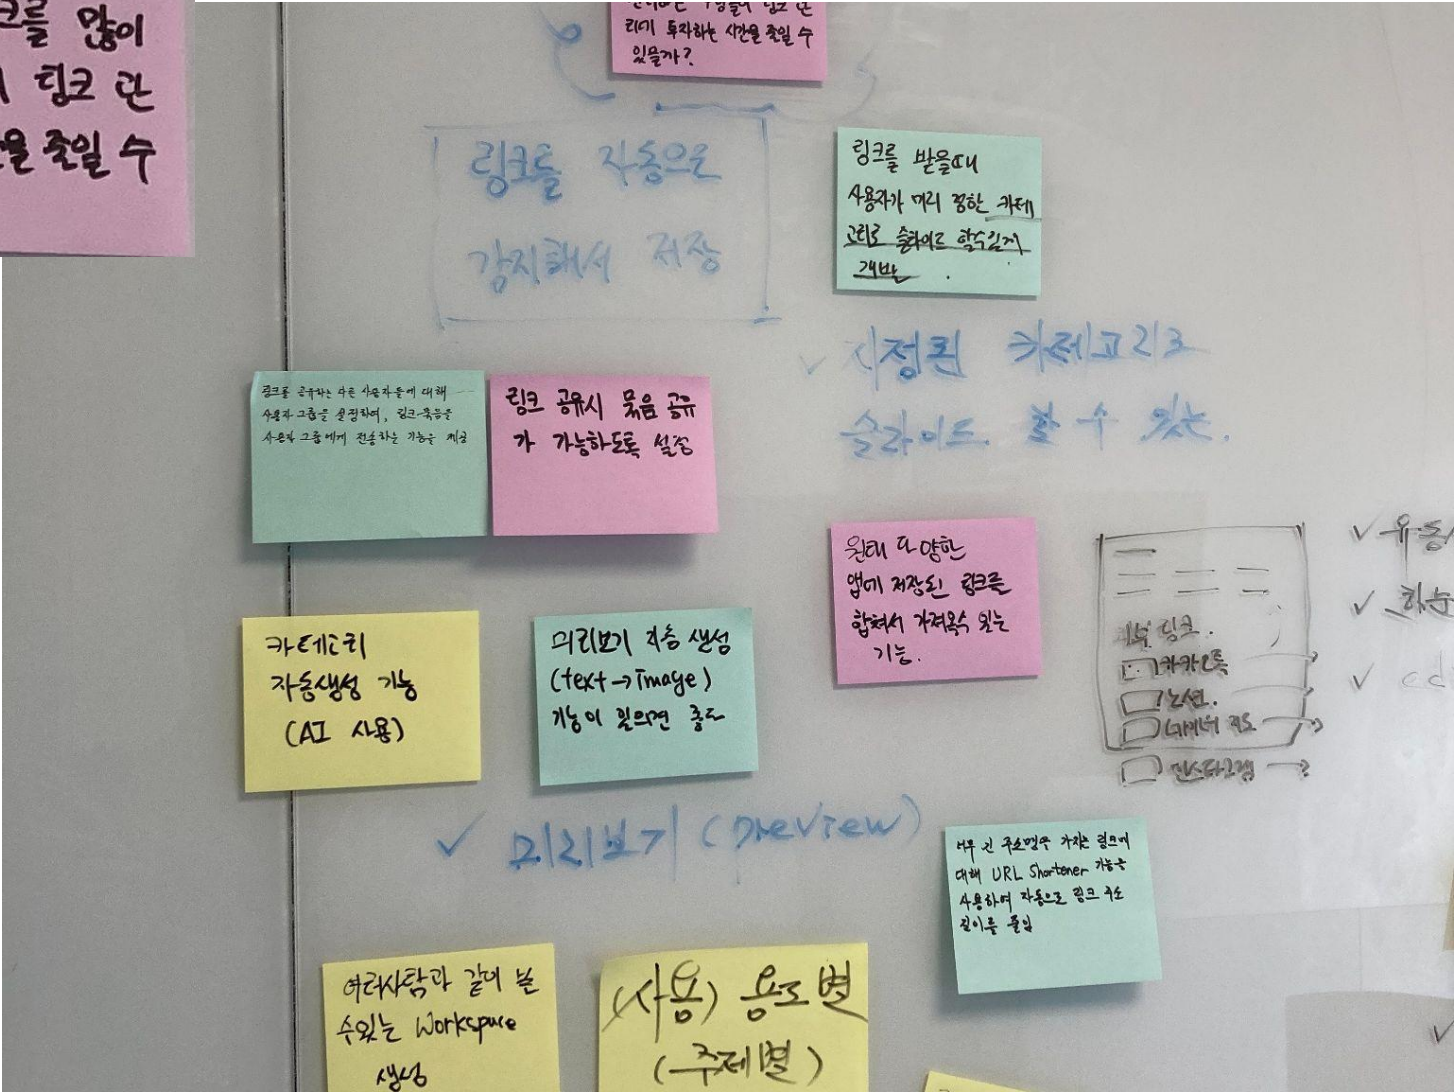 크를 많이
링크 관
줄일 수
투자하는 시간을 줄일 수
있을까?
링크를 자동으로
감지해서 저장
링크를 받을때
사용자가 미리 정한 카테
고리로 슬라이드 할수있게
개발.
✓ 지정된 카테고리로
슬라이드 할 수 있는.
링크를 공유하는 다른 사용자들에 대해
사용자 그룹을 설정하여, 링크 묶음을
사용자 그룹에게 전송하는 기능을 제공
링크 공유시 묶음 공유
가 가능하도록 설정
원래 다양한
앱에 저장된 링크를
합쳐서 가져올수 있는
기능.
링크.
카카오톡
노션.
네이버 지도
인스타그램
✓
✓
✓
카테고리
자동생성 기능
(AI 사용)
미리보기 자동 생성
(text→image)
기능이 있으면 좋다
✓ 미리보기 (preview)
너무 긴 주소명을 가지는 링크에
대해 URL Shortener 기능을
사용하여 자동으로 링크 주소
길이를 줄임
여러사람과 같이 볼
수있는 Workspace
생성
(사용) 용도별
(주제별)
✓